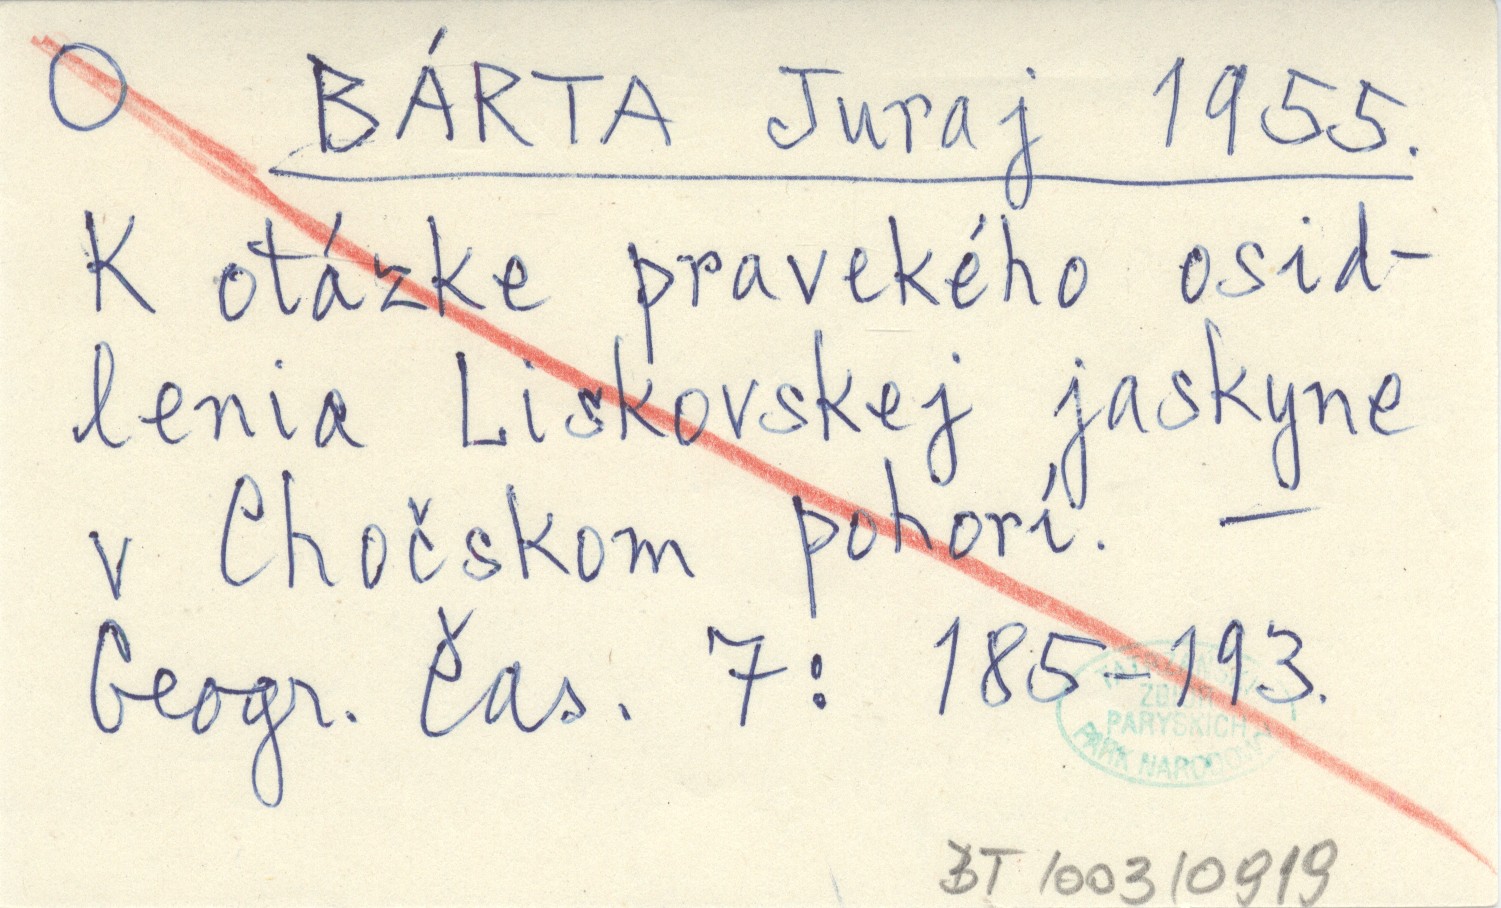 O BÁRTA Juraj 1955.
K otázke pravekého osid-
lenia Liskovskej jaskyne
v Chočskom pohorí. —
Geogr. čas. 7: 185-193.
ZBIÓR
PARYSKICH
PARK NARODOWY
BT/003/0919